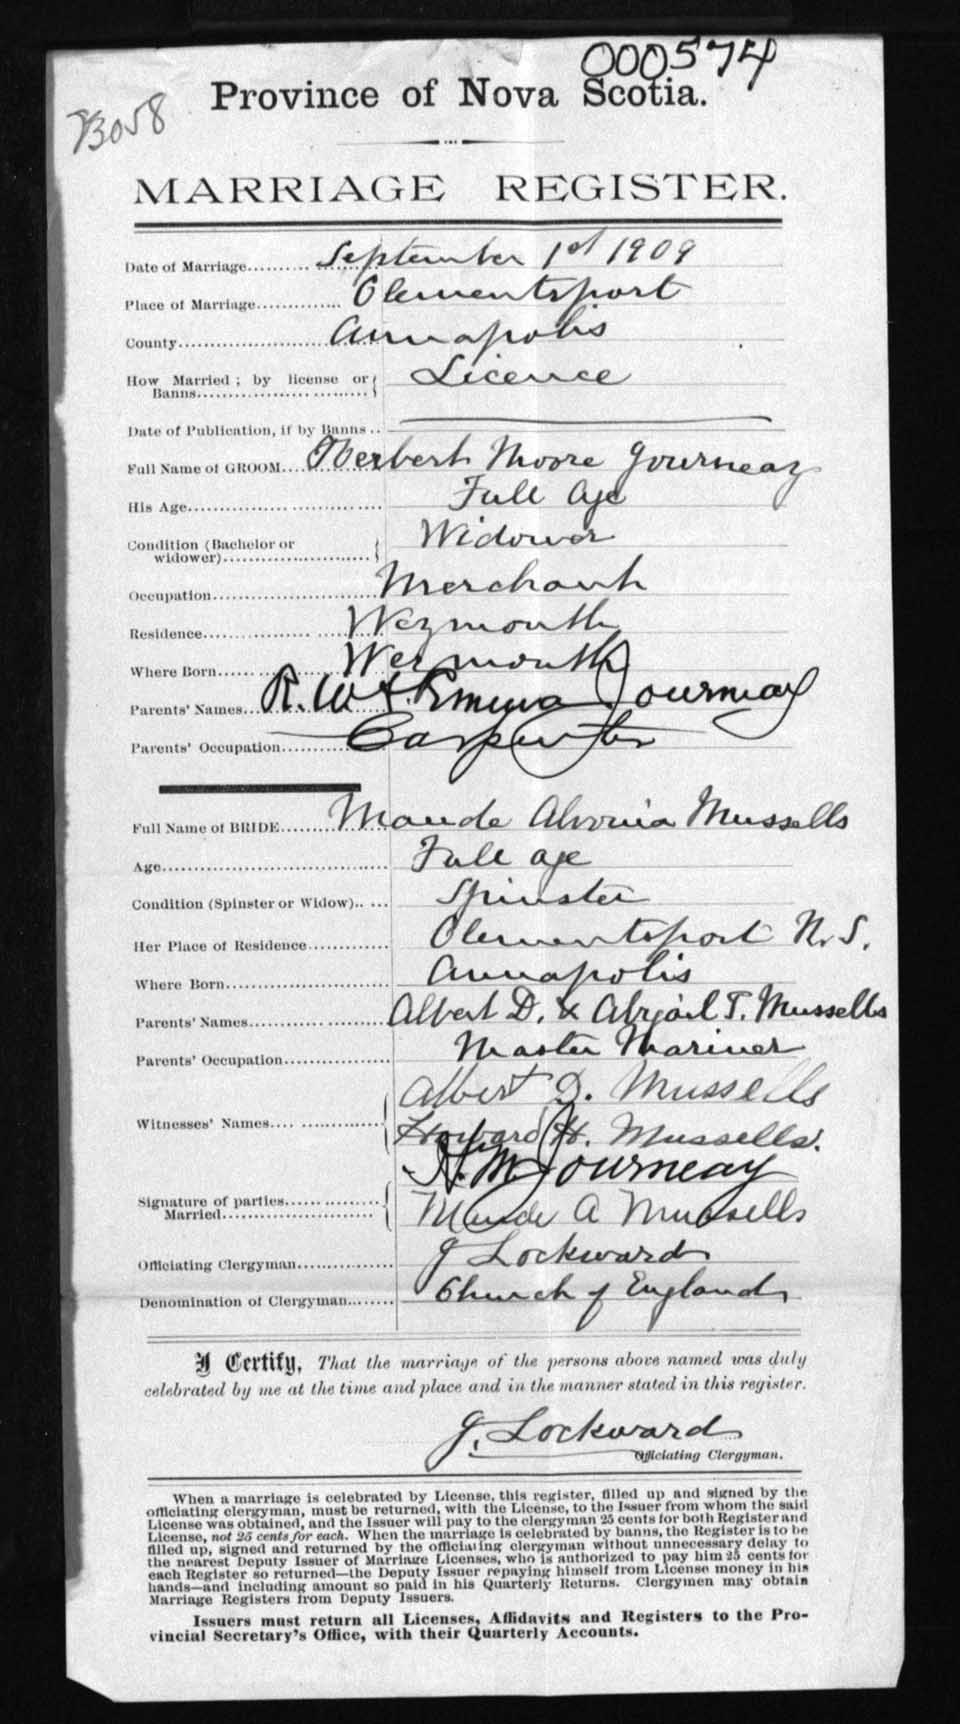 000574
73058
Province of Nova Scotia.
MARRIAGE REGISTER.
Date of Marriage.......... September 1st 1909
Place of Marriage............. Clementsport
County........................ Annapolis
How Married ; by license or Licence
Banns........................
Date of Publication, if by Banns ..
Full Name of GROOM.... Herbert Moore Journeay
His Age........................ Full Age
Condition (Bachelor or Widower
widower)........................
Occupation........................ Merchant
Residence........................ Weymouth
Where Born........................ Weymouth
Parents' Names... R. W & Emma Journeay
Parents' Occupation.......... Carpenter
Full Name of BRIDE........ Maude Alvonia Mussells
Age........................ Full age
Condition (Spinster or Widow).. ... Spinster
Her Place of Residence............ Clementsport N. S.
Where Born........................ Annapolis
Parents' Names.................... Albert D. & Abigail T. Mussells
Parents' Occupation................ Master Mariner
Albert D. Mussells
Witnesses' Names.... ............
Howard H. Mussells.
H. M. Journeay
Signature of parties................
Married........................ Maude A Mussells
Officiating Clergyman............... J Lockward
Denomination of Clergyman........ Church of England
I Certify, That the marriage of the persons above named was duly
celebrated by me at the time and place and in the manner stated in this register.
J. Lockward
Officiating Clergyman.
When a marriage is celebrated by License, this register, filled up and signed by the
officiating clergyman, must be returned, with the License, to the Issuer from whom the said
License was obtained, and the Issuer will pay to the clergyman 25 cents for both Register and
License, not 25 cents for each. When the marriage is celebrated by banns, the Register is to be
filled up, signed and returned by the officiating clergyman without unnecessary delay to
the nearest Deputy Issuer of Marriage Licenses, who is authorized to pay him 25 cents for
each Register so returned—the Deputy Issuer repaying himself from License money in his
hands—and including amount so paid in his Quarterly Returns. Clergymen may obtain
Marriage Registers from Deputy Issuers.
Issuers must return all Licenses, Affidavits and Registers to the Pro-
vincial Secretary's Office, with their Quarterly Accounts.